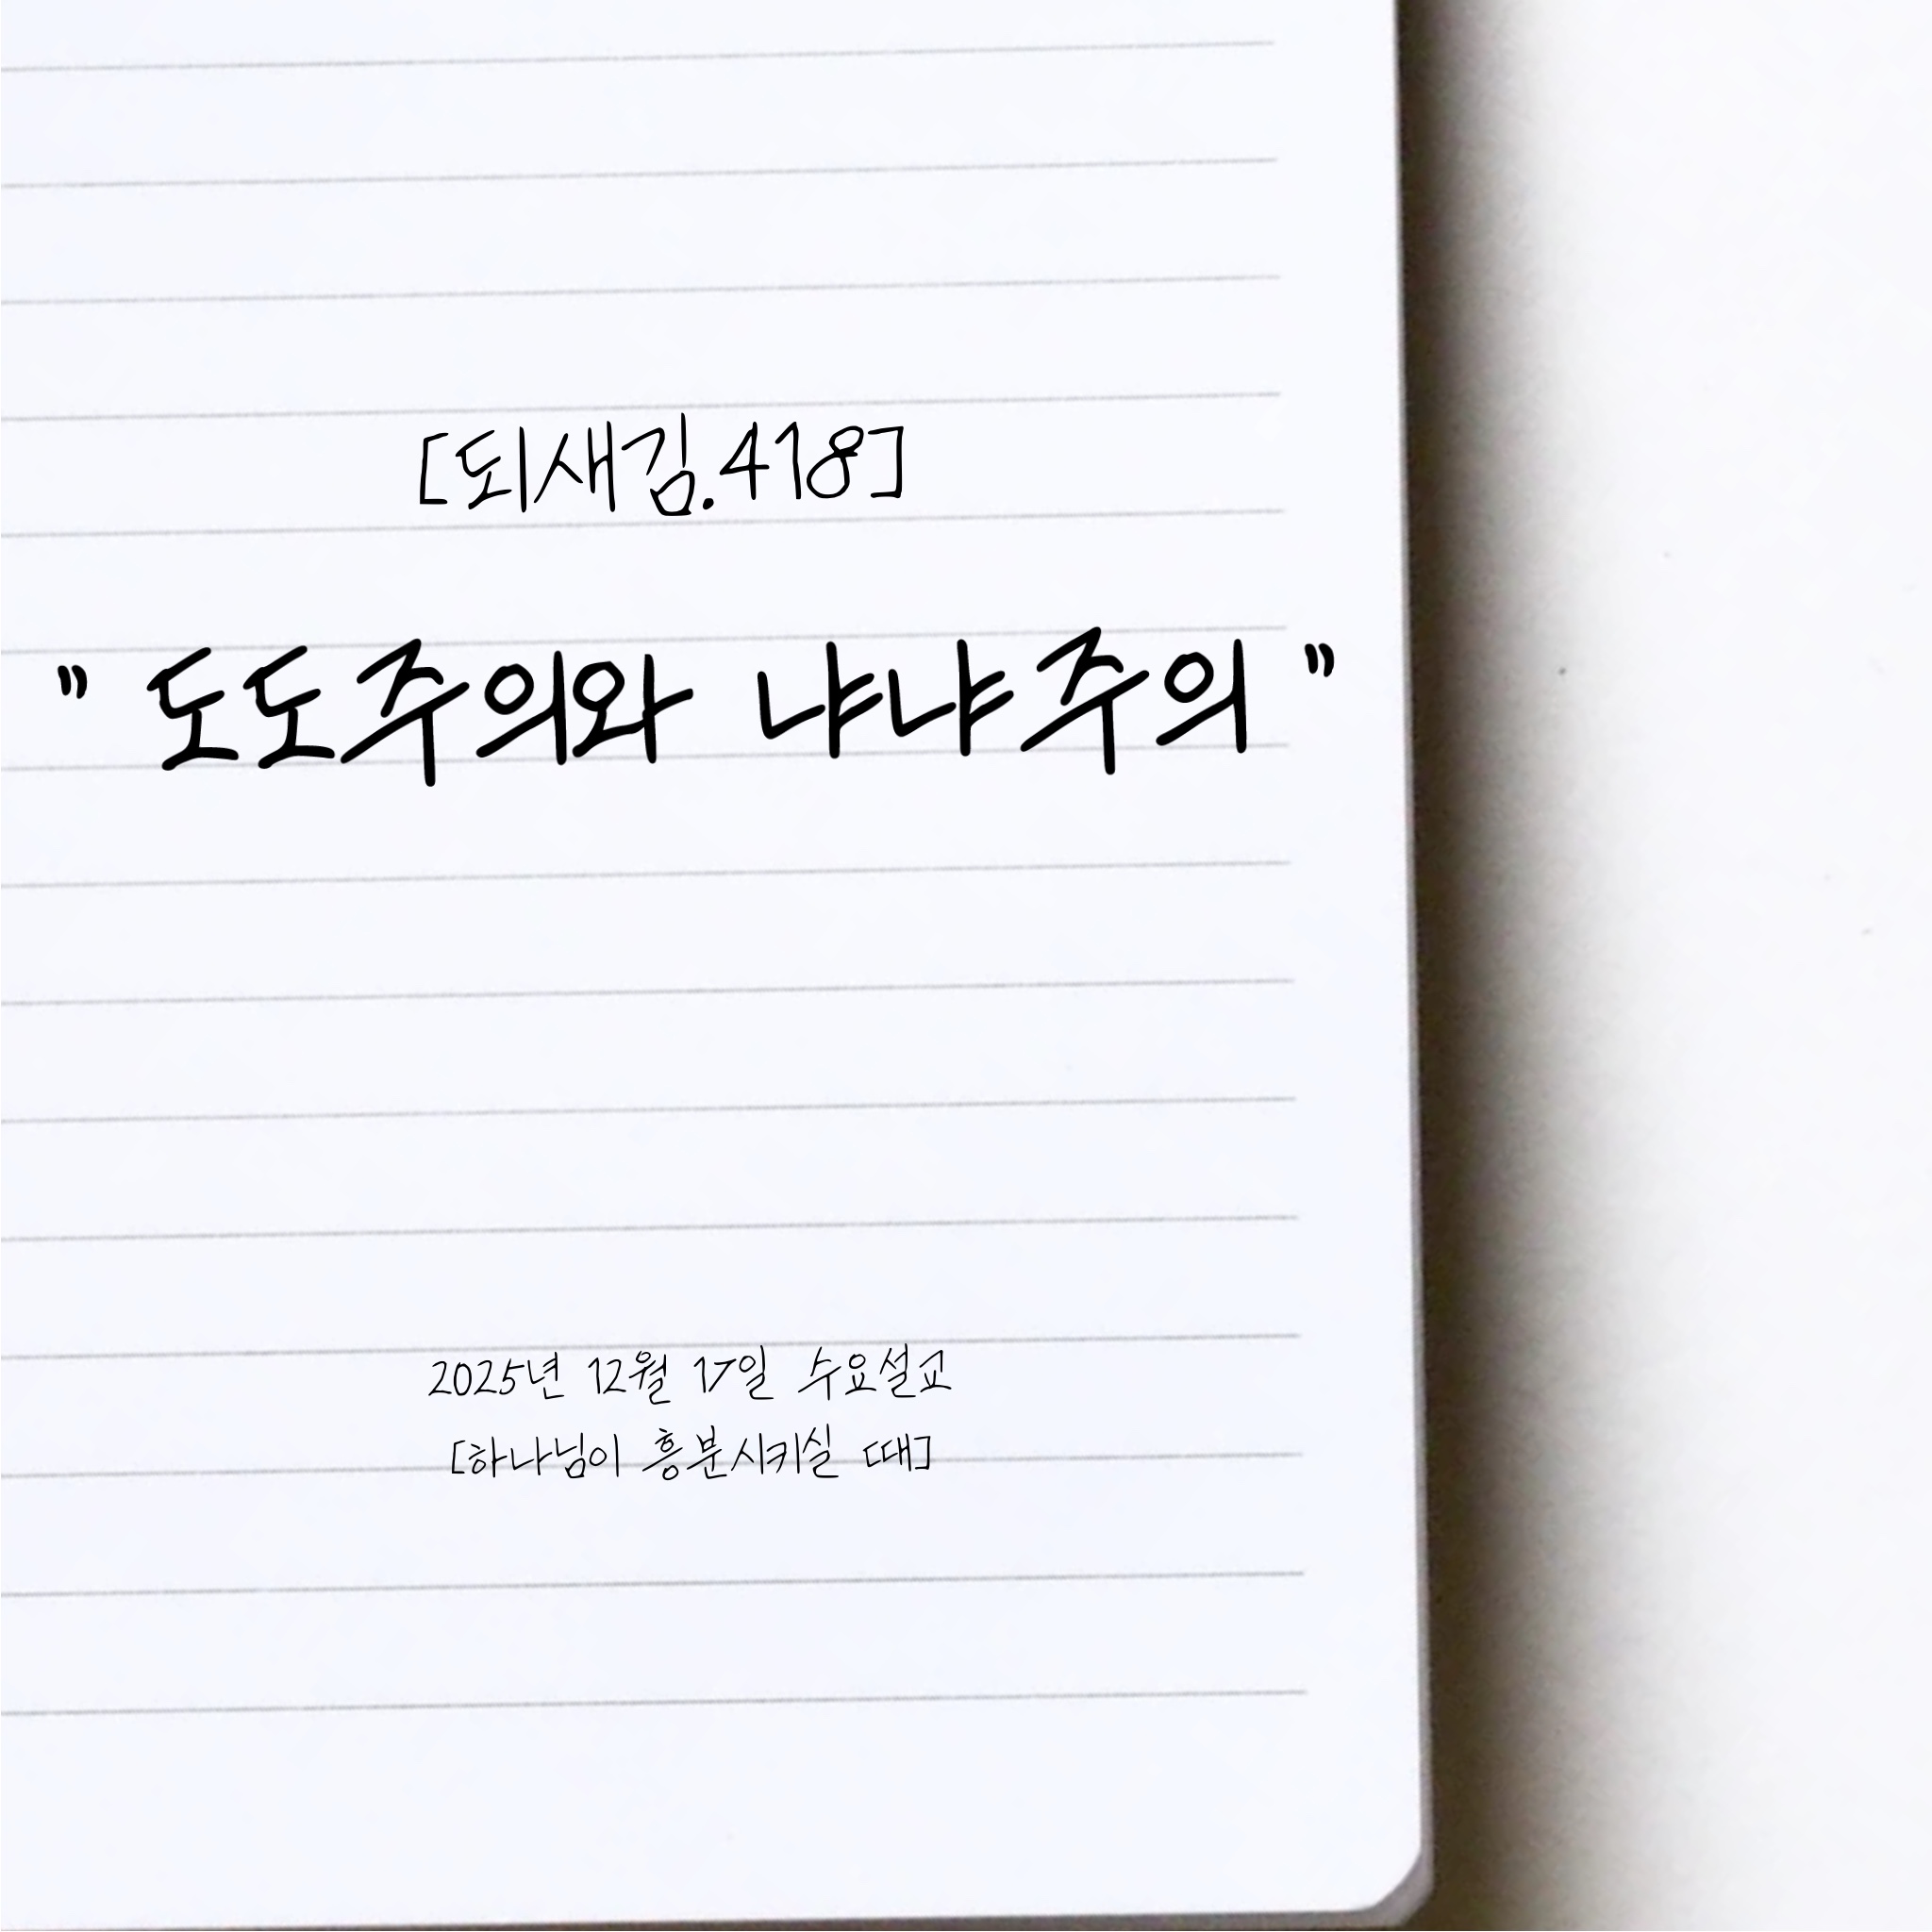 [되새김.418]
" 도도주의와 냐냐주의 "
2025년 12월 17일 수요설교
[하나님이 흥분시키실 때]